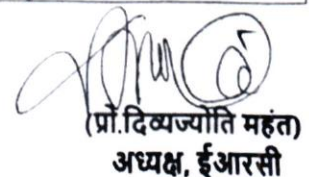 (प्रो.दिव्यज्योति महंत)
अध्यक्ष, ईआरसी